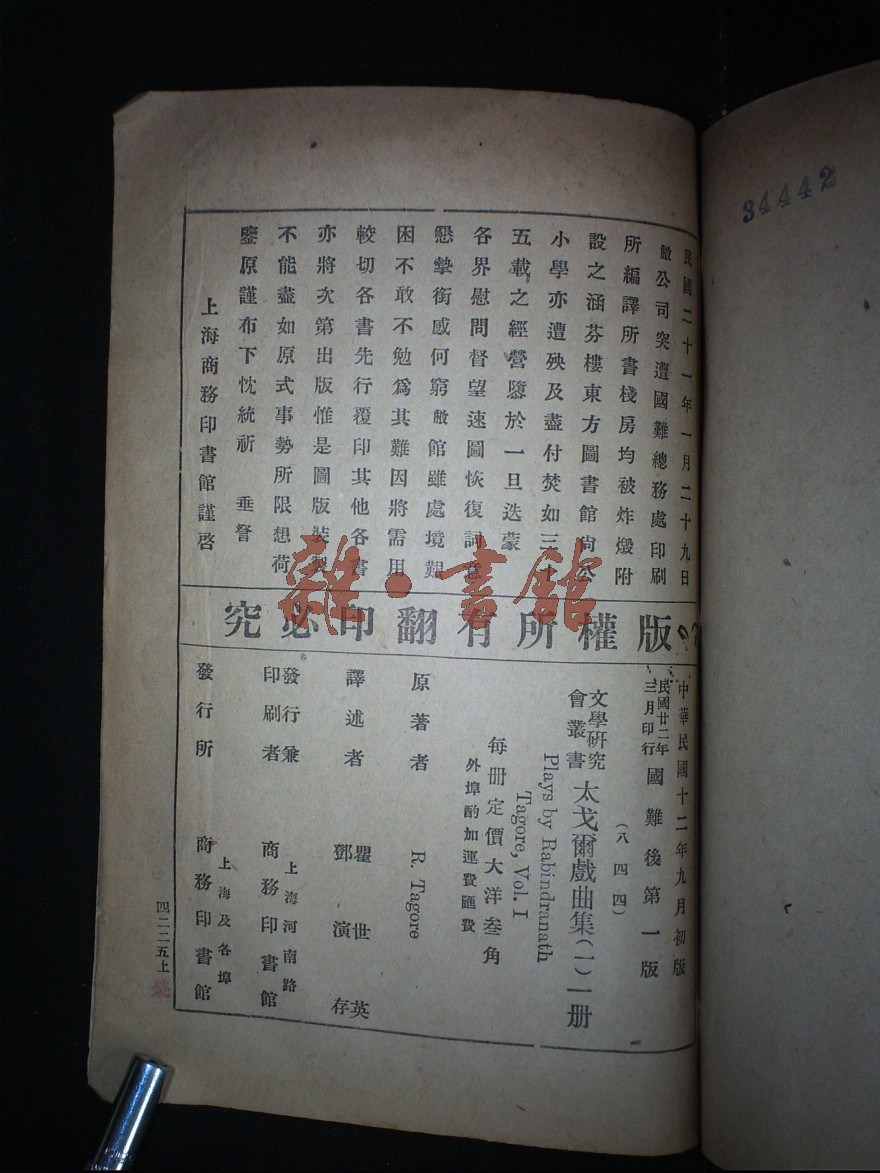 民國二十一年一月二十九日
敝公司突遭國難總務處印刷
所編譯所書棧房均被炸燬附
設之涵芬樓東方圖書館尚公
小學亦遭殃及盡付焚如三十
五載之經營隳於一旦迭蒙
各界慰問督望速圖恢復詞意
懇摯銜感何窮敝館雖處境艱
困不敢不勉爲其難因將需用
較切各書先行覆印其他各書
亦將次第出版惟是圖版裝製
不能盡如原式事勢所限想荷
鑒原謹布下忱統祈 垂詧
上海商務印書館謹啓
版權所有翻印必究
中華民國十二年九月初版
民國廿二年三月印行 國難後第一版
(八四四)
文學研究會叢書 太戈爾戲曲集(一)一册
Plays by Rabindranath
Tagore, Vol. I
每册定價大洋叁角
外埠酌加運費匯費
原著者 R. Tagore
譯述者 瞿世英 鄧演存
發行兼印刷者 上海河南路 商務印書館
發行所 上海及各埠 商務印書館
四二二五上
34442
雜·書館